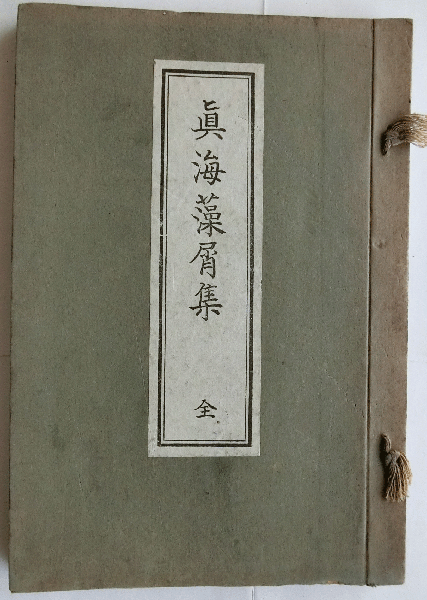 眞海藻屑集
全